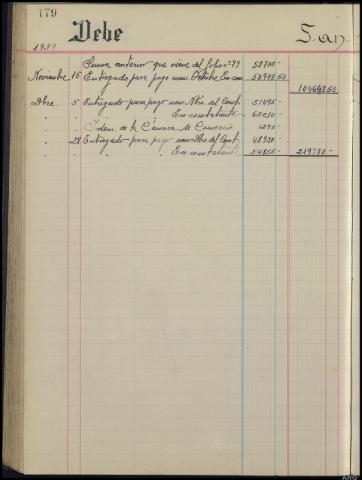 179
Debe
San
1939
Suma anterior que viene del folio nº 49 53700-
Noviembre 15 Entregado para pago nom. Octubre Ex-com 50998.50
104698.50
Dbre. 5 Entregado para pago nom Nbre del Comb. 51495-
" " " " Ex-combatiente
" " Idem de la Cámara de Comercio
" 28 Entregado para pago nom Dbre del Comb. 48930-
" " " " Ex-combatiente 54855- 219780-